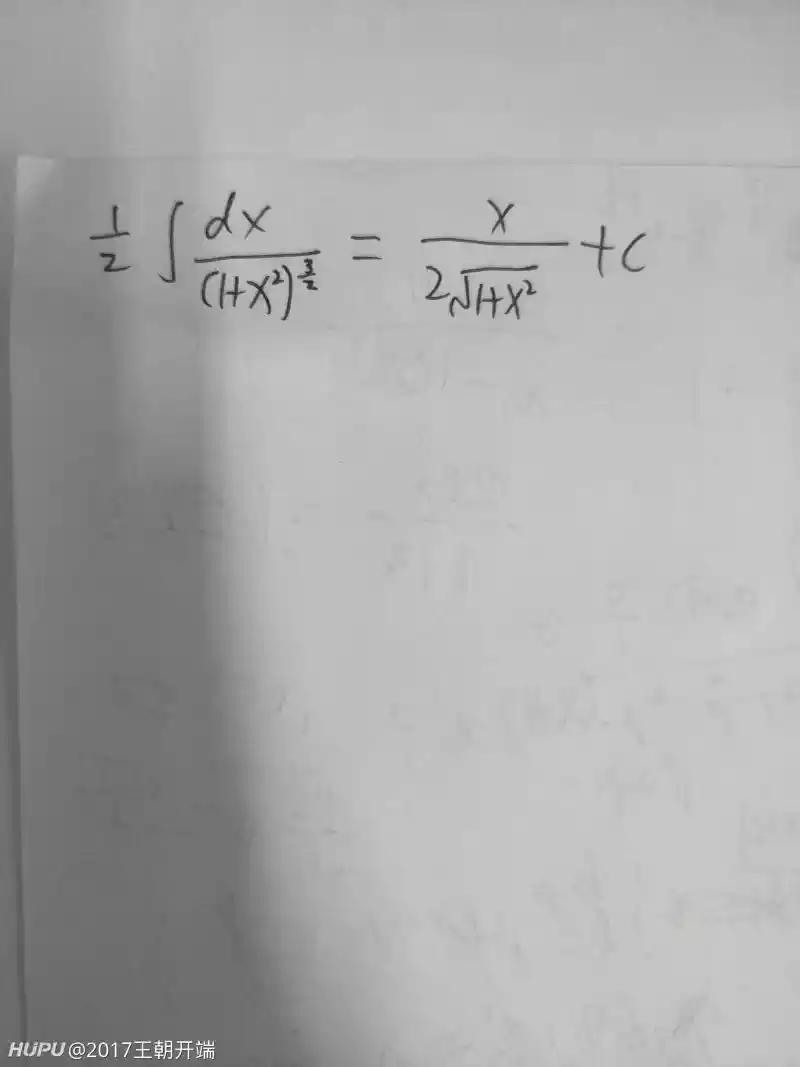 1/2 ∫ dx/(1+x²)^(3/2) = x/(2√(1+x²)) + c
HUPU @2017王朝开端